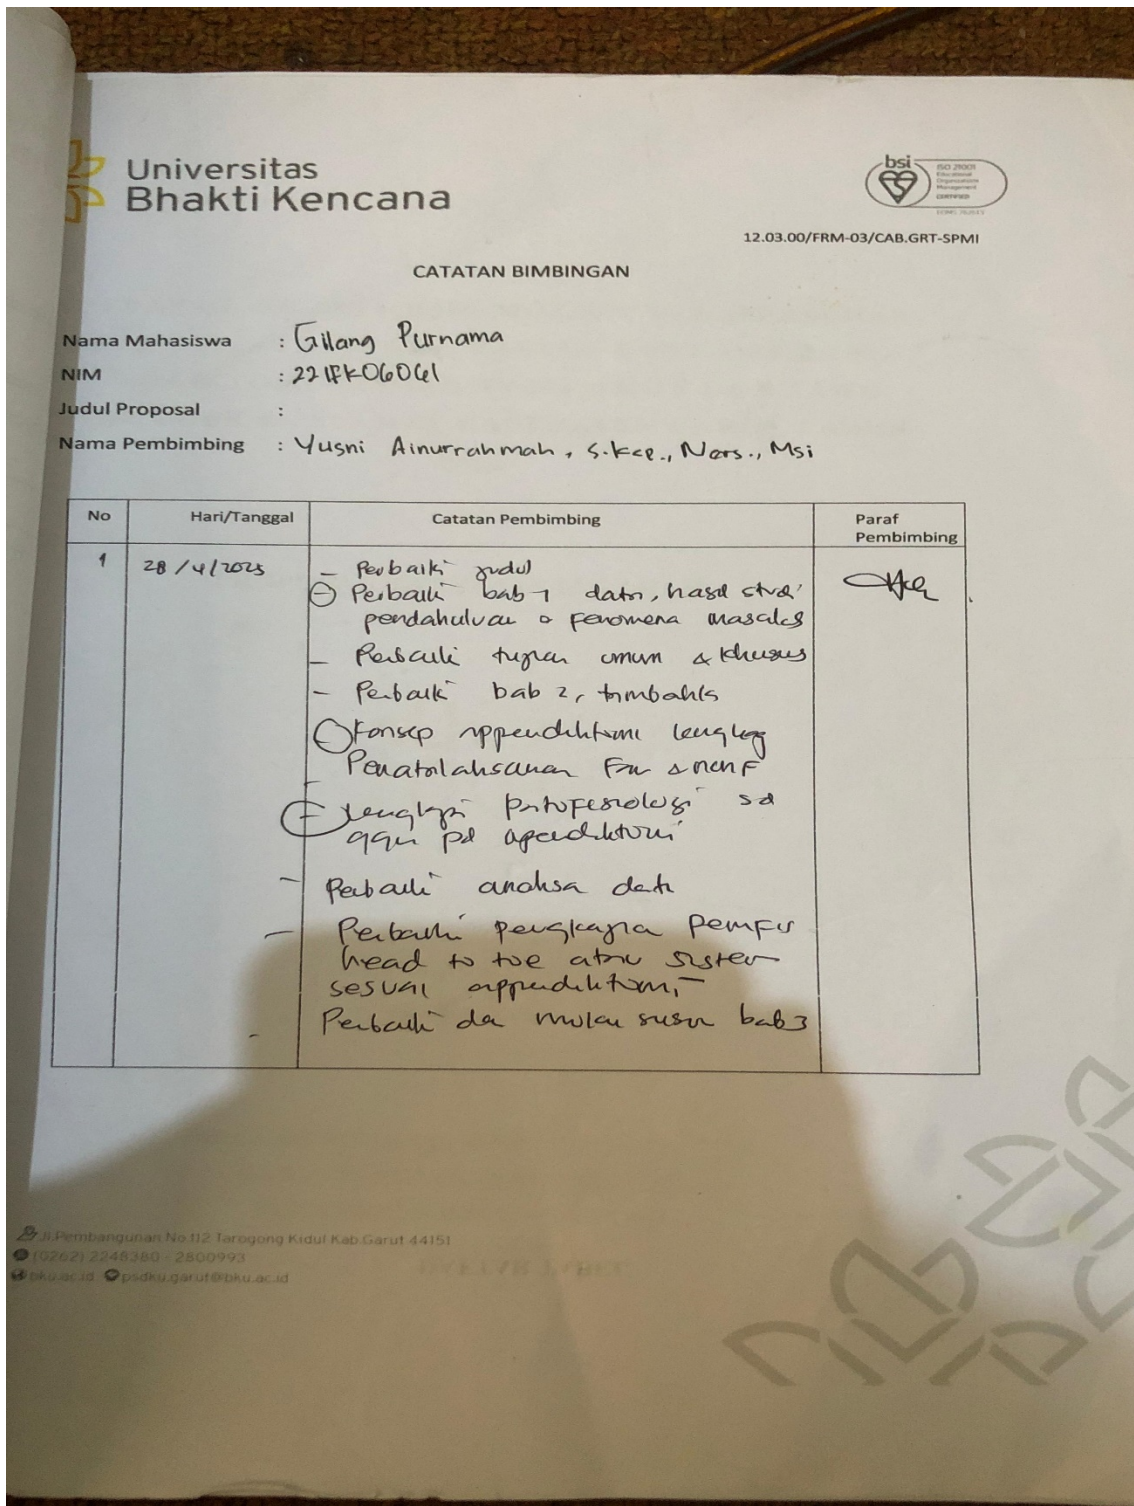 Universitas
Bhakti Kencana
bsi
ISO 21001
Educational
Organizations
Management
CERTIFIED
12.03.00/FRM-03/CAB.GRT-SPMI
CATATAN BIMBINGAN
Nama Mahasiswa : Gilang Purnama
NIM : 221FK06061
Judul Proposal :
Nama Pembimbing : Yusni Ainurrahmah, S.Kep., Ners., Msi
No Hari/Tanggal Catatan Pembimbing Paraf
Pembimbing
1 28/4/2025 - Perbaiki judul
- Perbaiki bab 1 data, hasil studi
pendahuluan & fenomena masalah
- Perbaiki tujuan umum & khusus
- Perbaiki bab 2,
- Konsep appendiktomi lengkap
Penatalaksanaan
- lengkapi patofisiologi sd
pd apendiktomi
- Perbaiki analisa data
- Perbaiki pengkajian pemfis
head to toe atau sistem
sesuai appendiktomi
- Perbaiki dan mulai susun bab 3
Jl.Pembangunan No.112 Tarogong Kidul Kab.Garut 44151
(0262) 2248380 - 2800993
bku.ac.id psdku.garut@bku.ac.id